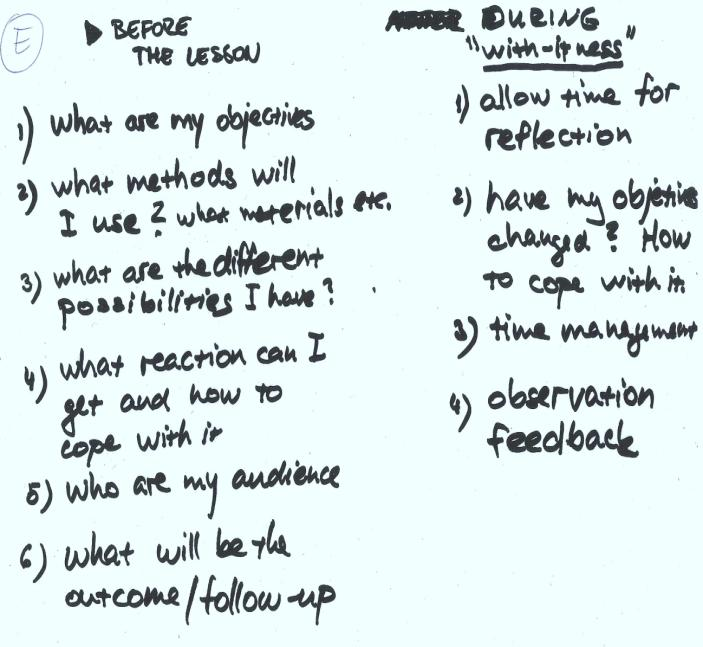 E
▶ BEFORE
THE LESSON
1) what are my objectives
2) what methods will
I use? what materials etc.
3) what are the different
possibilities I have?
4) what reaction can I
get and how to
cope with it
5) who are my audience
6) what will be the
outcome/follow-up
DURING
"with-it ness"
1) allow time for
reflection
2) have my objetives
changed? How
to cope with it.
3) time management
4) observation
feedback